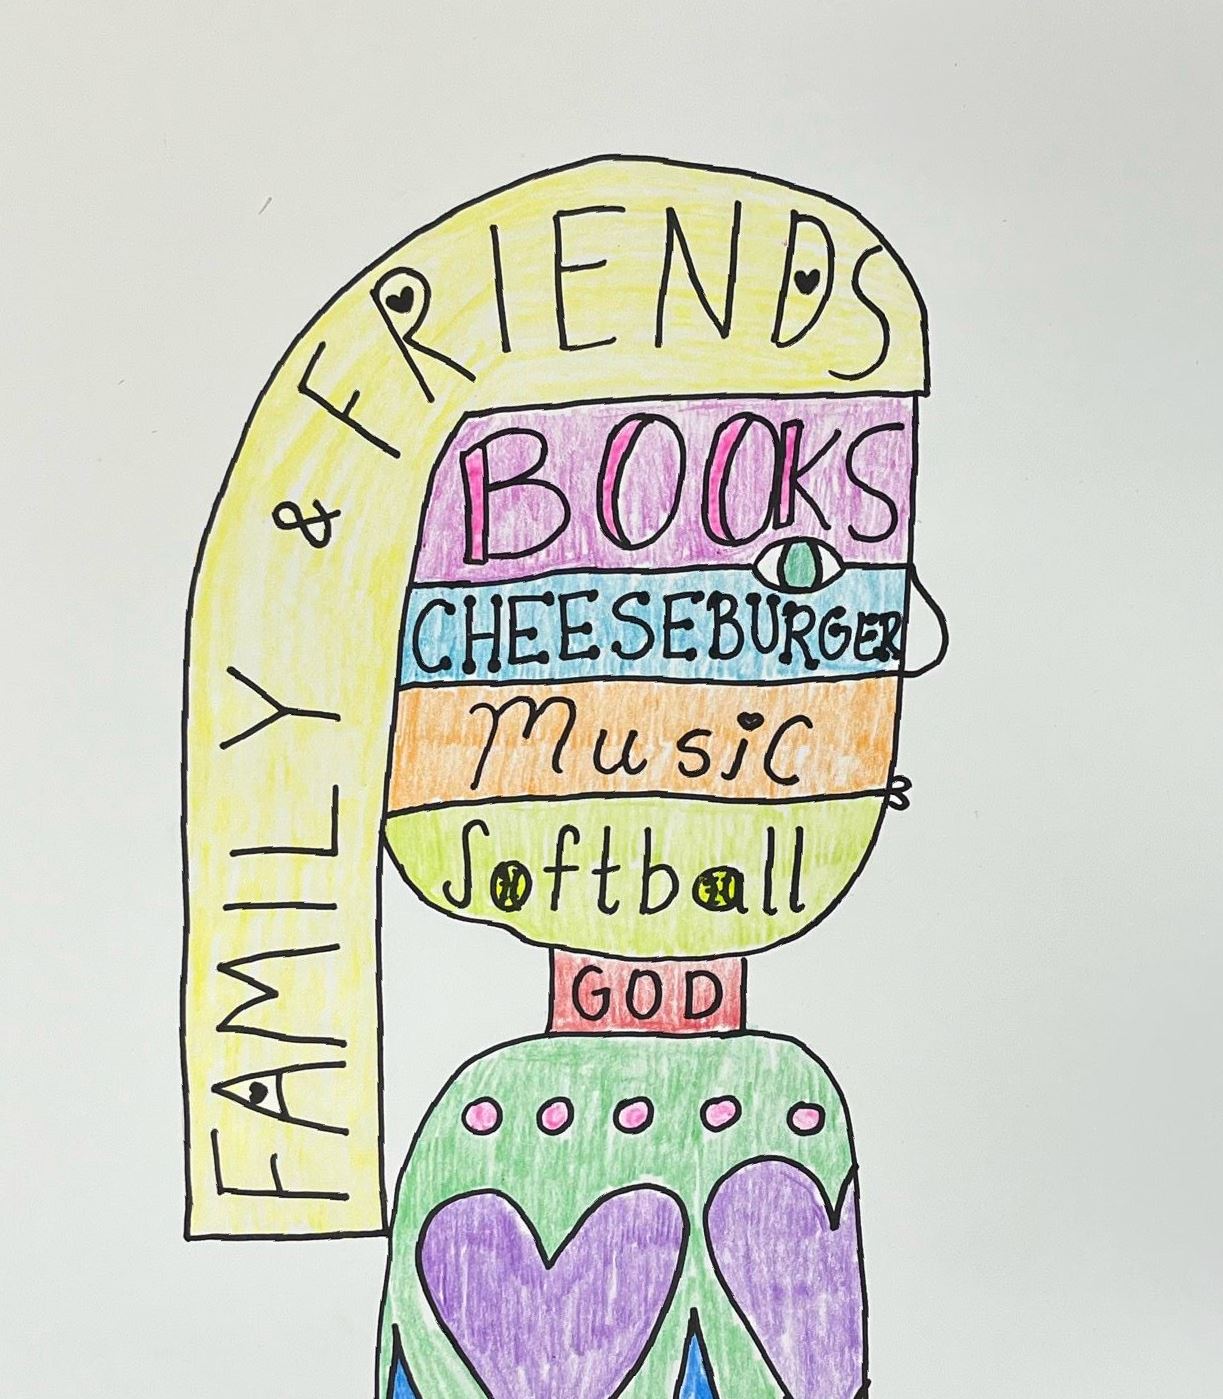 FAMILY & FRIENDS
BOOKS
CHEESEBURGER
Music
Softball
GOD